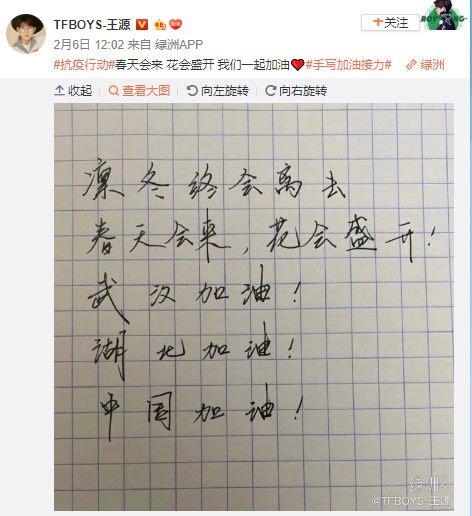 TFBOYS-王源
+关注
2月6日 12:02 来自 绿洲APP
#抗疫行动#春天会来 花会盛开 我们一起加油❤#手写加油接力# 绿洲
收起 查看大图 向左旋转 向右旋转
凛冬终会离去
春天会来，花会盛开！
武汉加油！
湖北加油！
中国加油！
绿洲
@TFBOYS-王源